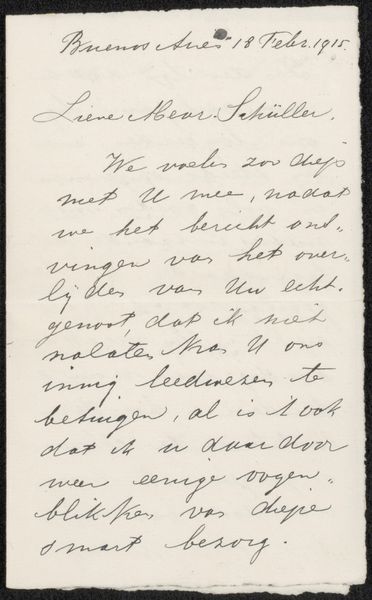 Buenos Aires 18 Febr. 1915.
Lieve Mevr. Schüller.
We voelen zoo diep
met U mee, nadat
we het bericht ont-
vingen van het over-
lijden van Uw echt-
genoot, dat ik niet
nalaten kan U ons
innig leedwezen te
betuigen, al is 't ook
dat ik u daardoor
weer eenige oogen-
blikken van diepe
smart bezorg.